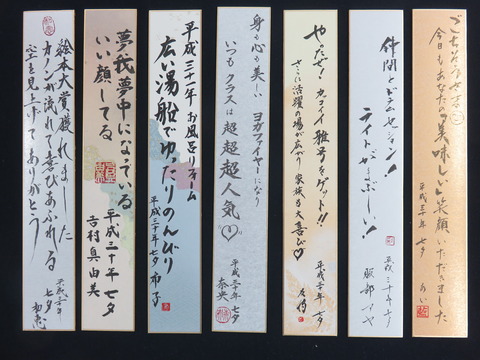 ごちそうさま
今日もあなたの『美味しい』笑顔いただきました
平成三十年 七夕
仲間とドラムセッション!
ライトがまぶしい!
平成三十年七夕
服部
やったぜ! カッコイイ雅号をゲット!!
さらに活躍の場が広がり 家族も大喜び
平成三十年 七夕
身も心も美しい ヨガファイヤーになり
いつもクラスは超超超人気
平成三十年 七夕
奈央
平成三十一年 お風呂リフォーム
広い湯船でゆったりのんびり
平成三十年 七夕 布子
夢我夢中になっている
いい顔してる
平成三十年 七夕
吉村真由美
絵本大賞獲れました
カノンが流れて喜びあふれる
空を見上げて ありがとう
平成三十年 七夕